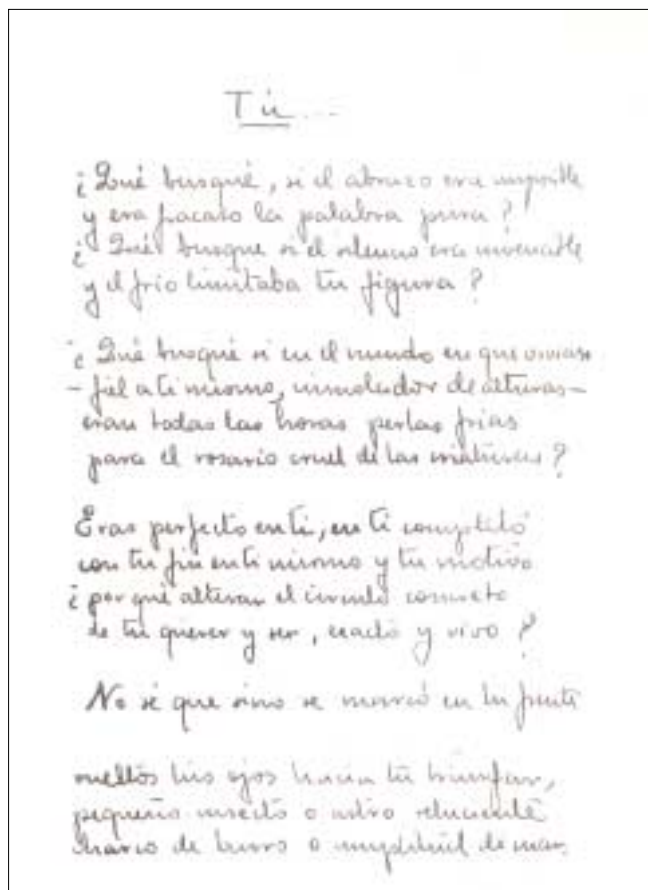 Tú...
¿Qué busqué, si el abrazo era imposible
y era fracaso la palabra pura?
¿Qué busque si el silencio era invencible
y el frio limitaba tu figura?
¿Qué busqué si en el mundo en que vivias
- fiel a ti mismo, inmolador de alturas -
eran todas las horas perlas frias
para el rosario cruel de las criaturas?
Eras perfecto en ti, en ti completo
con tu fin en ti mismo y tu motivo
¿por qué alterar el circulo concreto
de tu querer y ser, exacto y vivo?
No sé que sino se marcó en tu frente
vueltos tus ojos hacia tu
pequeño insecto o astro reluciente
charco de barro o de mar.